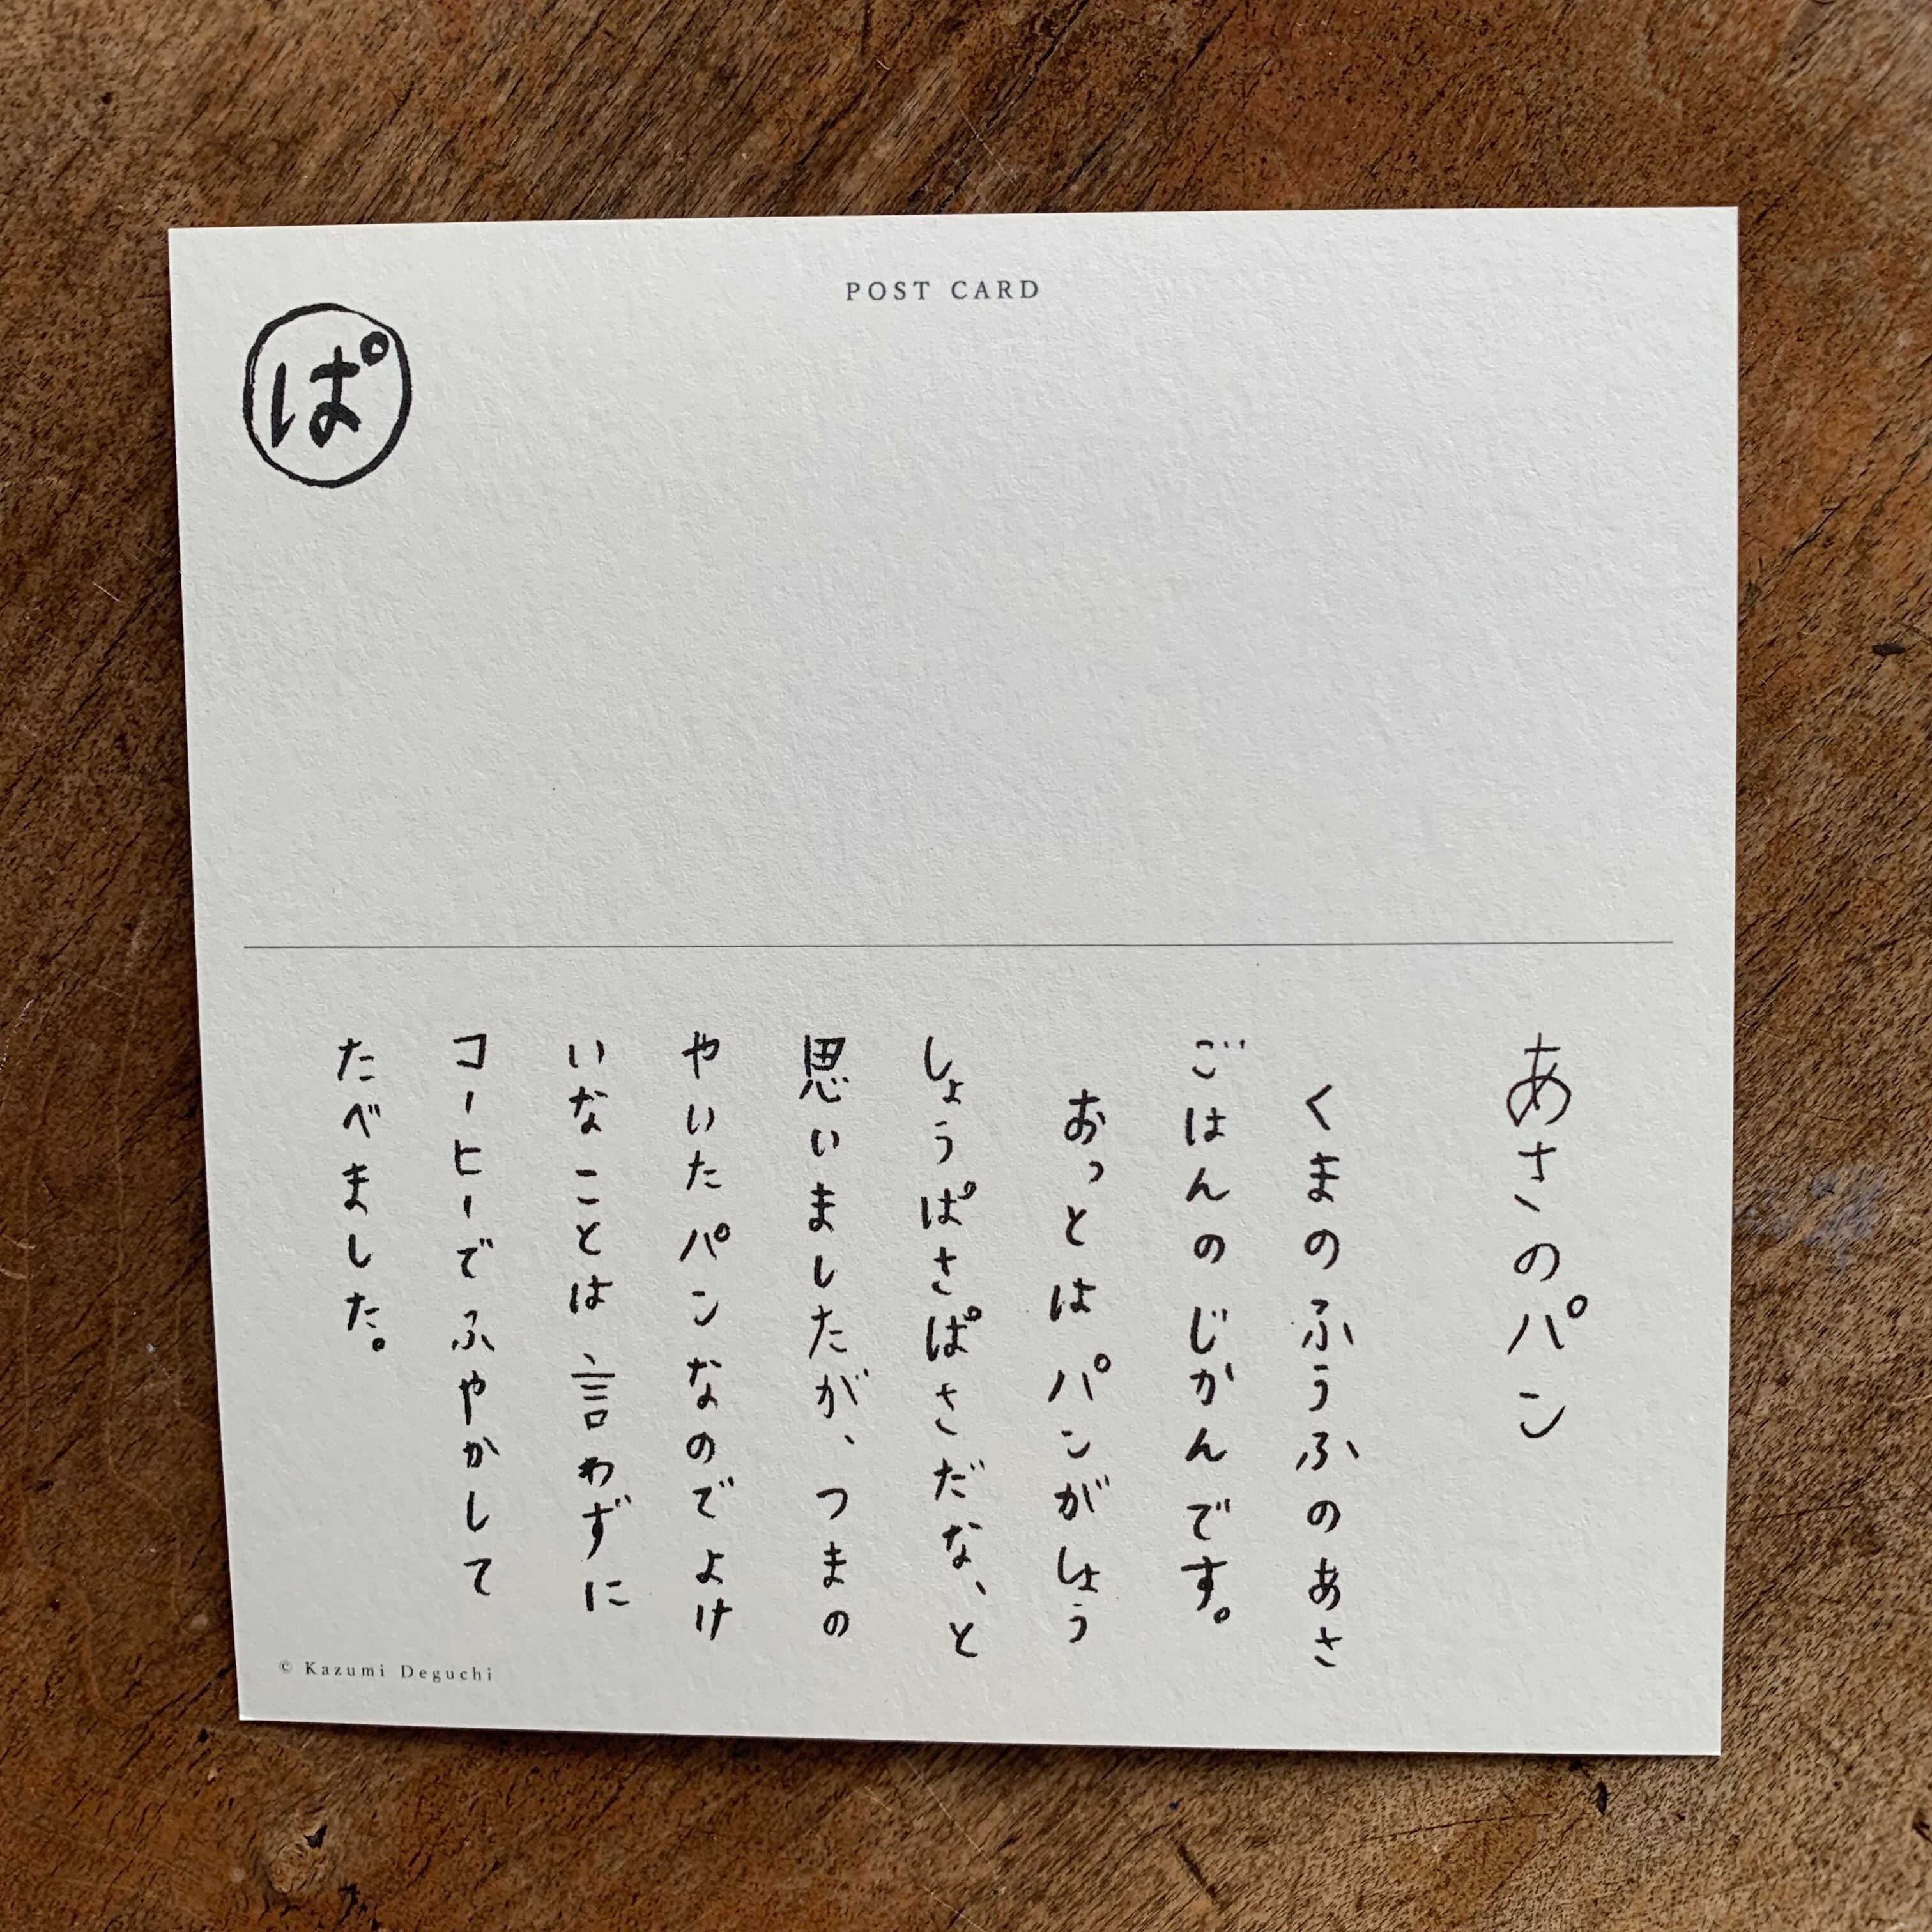 POST CARD
ぱ
あさのパン
くまのふうふのあさ
ごはんのじかんです。
おっとはパンがしょう
しょうぱさぱさだな、と
思いましたが、つまの
やいたパンなのでよけ
いなことは言わずに
コーヒーでふやかして
たべました。
© Kazumi Deguchi